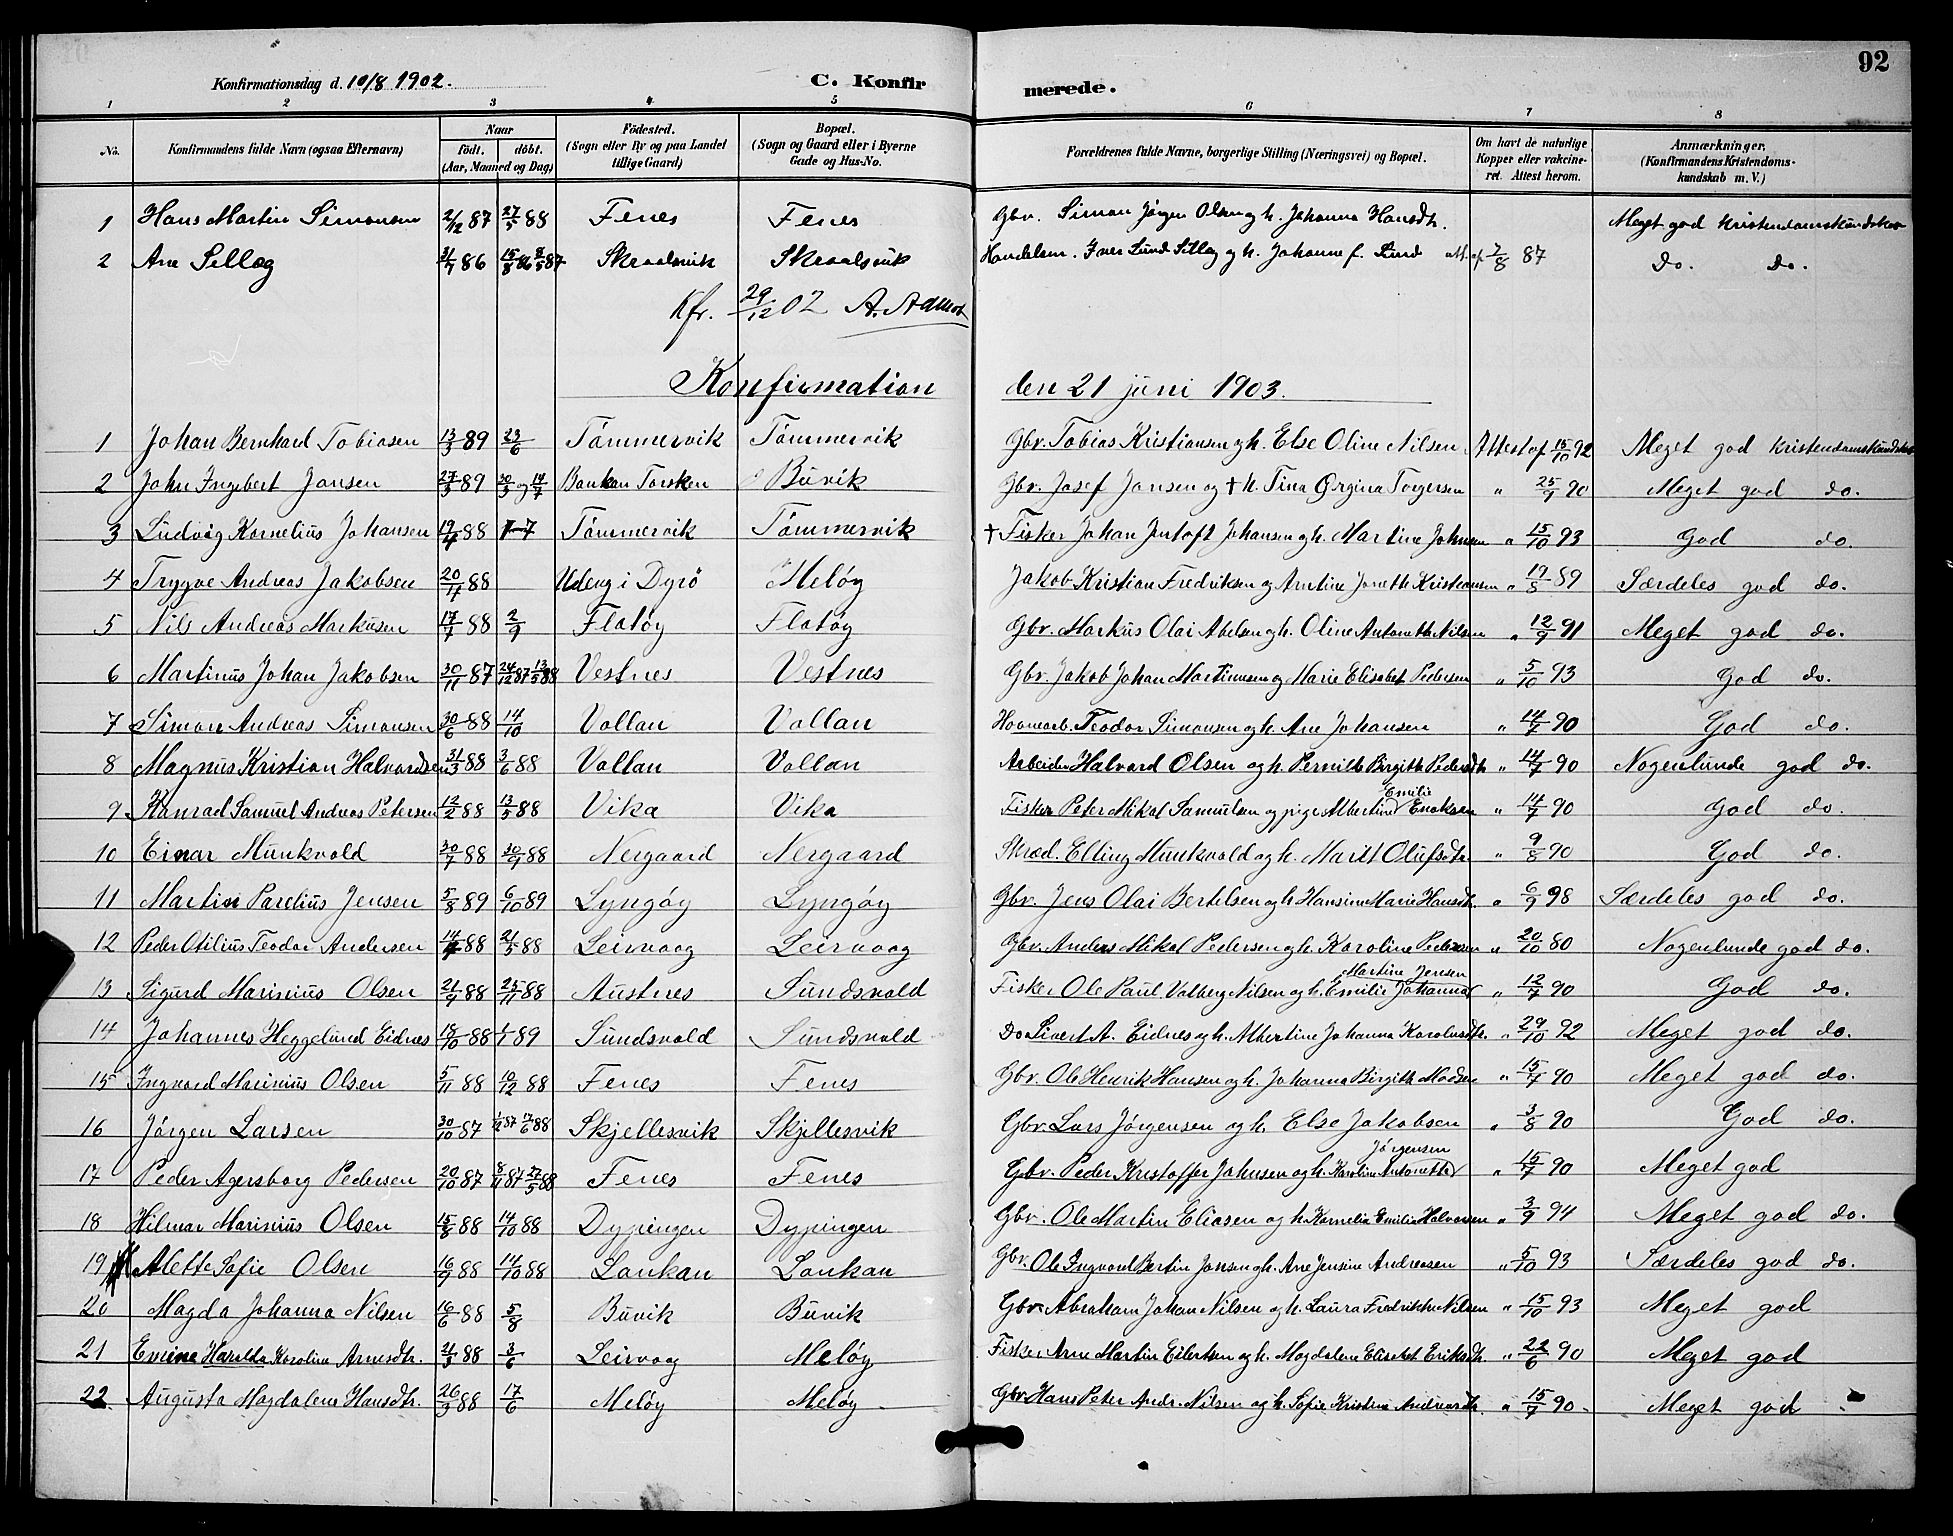 92
Konfirmationsdag d. 10/8 1902. C. Konfir merede.
1 2 3 4 5 6 7 8
No. Konfirmandens fulde Navn (ogsaa Efternavn) Naar født. døbt. (Aar, Maaned og Dag) Fødested. (Sogn eller By og paa Landet tillige Gaard) Bopæl. (Sogn og Gaard eller i Byerne Gade og Hus-No. Forældrenes fulde Navne, borgerlige Stilling (Næringsvei) og Bopæl. Om havt de naturlige Kopper eller vakcineret. Attest herom. Anmærkninger. (Konfirmandens Kristendomskundskab m. V.)
1 Hans Martin Simonsen 2/12 87 27/5 88 Fenes Fenes Gbr. Simon Jörgen Olsen og h. Johanna Hansdtr. Meget god Kristendomskundskab
2 Ane Sellæg 31/7 86 15/8 86 8/5 87 Skraalsvik Skraalsvik Handelsm. Iver Lund Selleg og h. Johanne f. Lund Att. af 2/8 87 do. do.
Kfr. 29/12 02 A. Aamot
Konfirmation den 21 juni 1903.
1 Johan Bernhard Tobiasen 13/3 89 23/6 Tömmervik Tömmervik Gbr. Tobias Kristiansen og h. Else Oline Nilsen Attest af 15/10 92 Meget god Kristendomskundskab
2 John Ingebert Jansen 27/3 89 30/3 og 14/7 Baukan Torsken Buvik Gbr. Josef Jansen og † h. Tina Ørgina Torgersen " 25/9 90 Meget god do.
3 Ludvig Kornelius Johansen 19/4 88 7-7 Tömmervik Tömmervik † Fisker Johan Jentoft Johansen og h. Martine Johnsen " 15/10 93 God do.
4 Trygve Andreas Jakobsen 20/11 88 i Dyrö Meløy Jakob Kristian Fredriksen og Antine Jonette Kristiansen " 19/8 89 Særdeles god do.
5 Nils Andreas Markusen 17/7 88 2/9 Flatøy Flatøy Gbr. Markus Olai Abelsen og h. Oline Antonette Nilsen " 12/9 91 Meget god do.
6 Martinus Johan Jakobsen 30/11 87 24/12 87 13/5 88 Vestnes Vestnes Gbr. Jakob Johan Martinussen og Marie Elisabet Pedersen " 5/10 93 God do.
7 Simon Andreas Simonsen 30/6 88 14/10 Vollan Vollan Havnearb. Teodor Simonsen og h. Ane Johansen " 14/7 90 God do.
8 Magnus Kristian Halvardsen 31/3 88 3/6 88 Vollan Vollan Arbeider Halvard Olsen og h. Pernille Birgitte Pedersdtr. " 14/7 90 Nogenlunde god do.
9 Konrad Samuel Andreas Petersen 12/2 88 13/5 88 Vika Vika Fisker Peter Mikal Samuelsen og pige Albertine Emilie Enoksen " 14/7 90 God do.
10 Einar Munkvold 30/7 88 30/9 88 Nergaard Nergaard Skræd. Elling Munkvold og h. Marit Olufsdtr. " 9/8 90 God do.
11 Martin Parelius Jensen 5/8 89 6/10 89 Lyngøy Lyngøy Gbr. Jens Olai Bertelsen og h. Hansine Marie Hansdtr. " 6/9 98 Særdeles god do.
12 Peder Otilius Teodor Andersen 14/4 88 21/5 88 Leirvaag Leirvaag Gbr. Anders Mikal Pedersen og h. Karoline Pedersen " 20/10 80 Nogenlunde god do.
13 Sigurd Marinius Olsen 21/9 88 25/11 88 Austnes Sundsvold Fisker Ole Paul Valberg Nilsen og h. Emilie Johanna Martine Jensen " 12/7 90 God do.
14 Johannes Heggelund Eidnes 18/10 88 1/1 89 Sundsvold Sundsvold Do Sivert A. Eidnes og h. Albertine Johanna Karolusdtr. " 29/10 92 Meget god do.
15 Ingvard Marinius Olsen 5/11 88 10/12 88 Fenes Fenes Gbr. Ole Henrik Hansen og h. Johanna Birgitte Madsen " 15/7 90 Meget god do.
16 Jørgen Larsen 30/10 87 1/12 87 17/6 88 Skjellesvik Skjellesvik Gbr. Lars Jørgensen og h. Else Jakobsen " 3/8 90 God do.
17 Peder Agersborg Pedersen 20/10 87 8/11 87 27/5 88 Fenes Fenes Gbr. Peder Kristoffer Johnsen og h. Karoline Antonette Jørgensen " 15/7 90 Meget god
18 Hilmar Marinius Olsen 15/8 88 14/10 88 Dypingen Dypingen Gbr. Ole Martin Eliasen og h. Kornelia Emilie Halvorsen " 3/9 94 Meget god do.
19 Alette Sofie Olsen 16/9 88 14/10 88 Laukan Laukan Gbr. Ole Ingvard Bertin Jansen og h. Ane Jensine Andreasen " 5/10 93 Særdeles god do.
20 Magda Johanna Nilsen 16/6 88 5/8 Buvik Buvik Gbr. Abraham Johan Nilsen og h. Laura Fredrikke Nilsen " 15/10 93 Meget god
21 Emine Haralda Karoline Arnesdtr. 21/3 88 3/6 Leirvaag Meløy Fisker Arne Martin Eilertsen og h. Magdalene Elisabet Eriksdtr. " 22/6 90 Meget god
22 Augusta Magdalene Hansdtr. 26/3 88 17/6 Meløy Meløy Gbr. Hans Peter Andr. Nilsen og h. Sofie Kristine Andreasdtr. " 15/7 90 Meget god